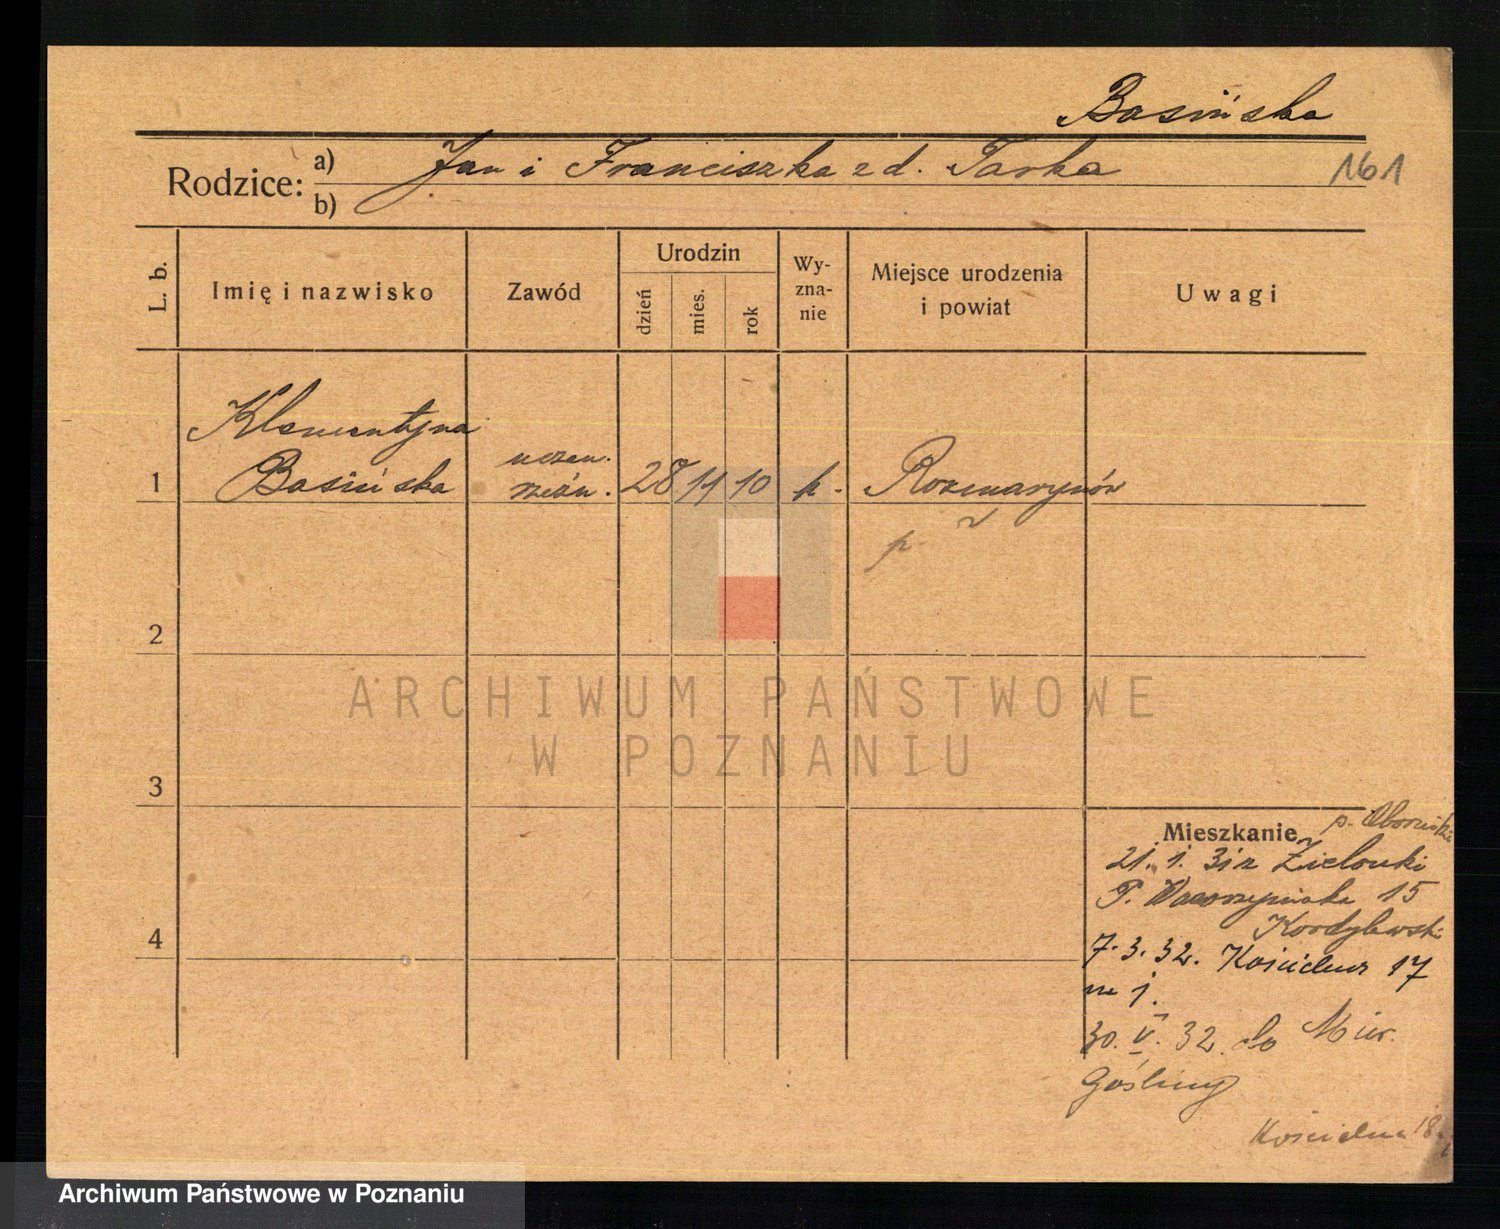 Basińska
Rodzice: a) Jan i Franciszka z d. Tarka
161
b)
L. b.
Imię i nazwisko
Zawód
Urodzin
dzień
mies.
rok
Wy-
zna-
nie
Miejsce urodzenia
i powiat
Uwagi
Klementyna
1 Basińska uczen. rzeźn. 28 11 10 k. Rozmarynów
p.
2
ARCHIWUM PAŃSTWOWE
W POZNANIU
3
Mieszkanie p.
21. 1. 31 z Zielonki
P. 15
Kordylewski
4
7. 3. 32. Kościelna 17
m 1.
30. V. 32. do Mur.
Gośliny
Kościelna 18
Archiwum Państwowe w Poznaniu